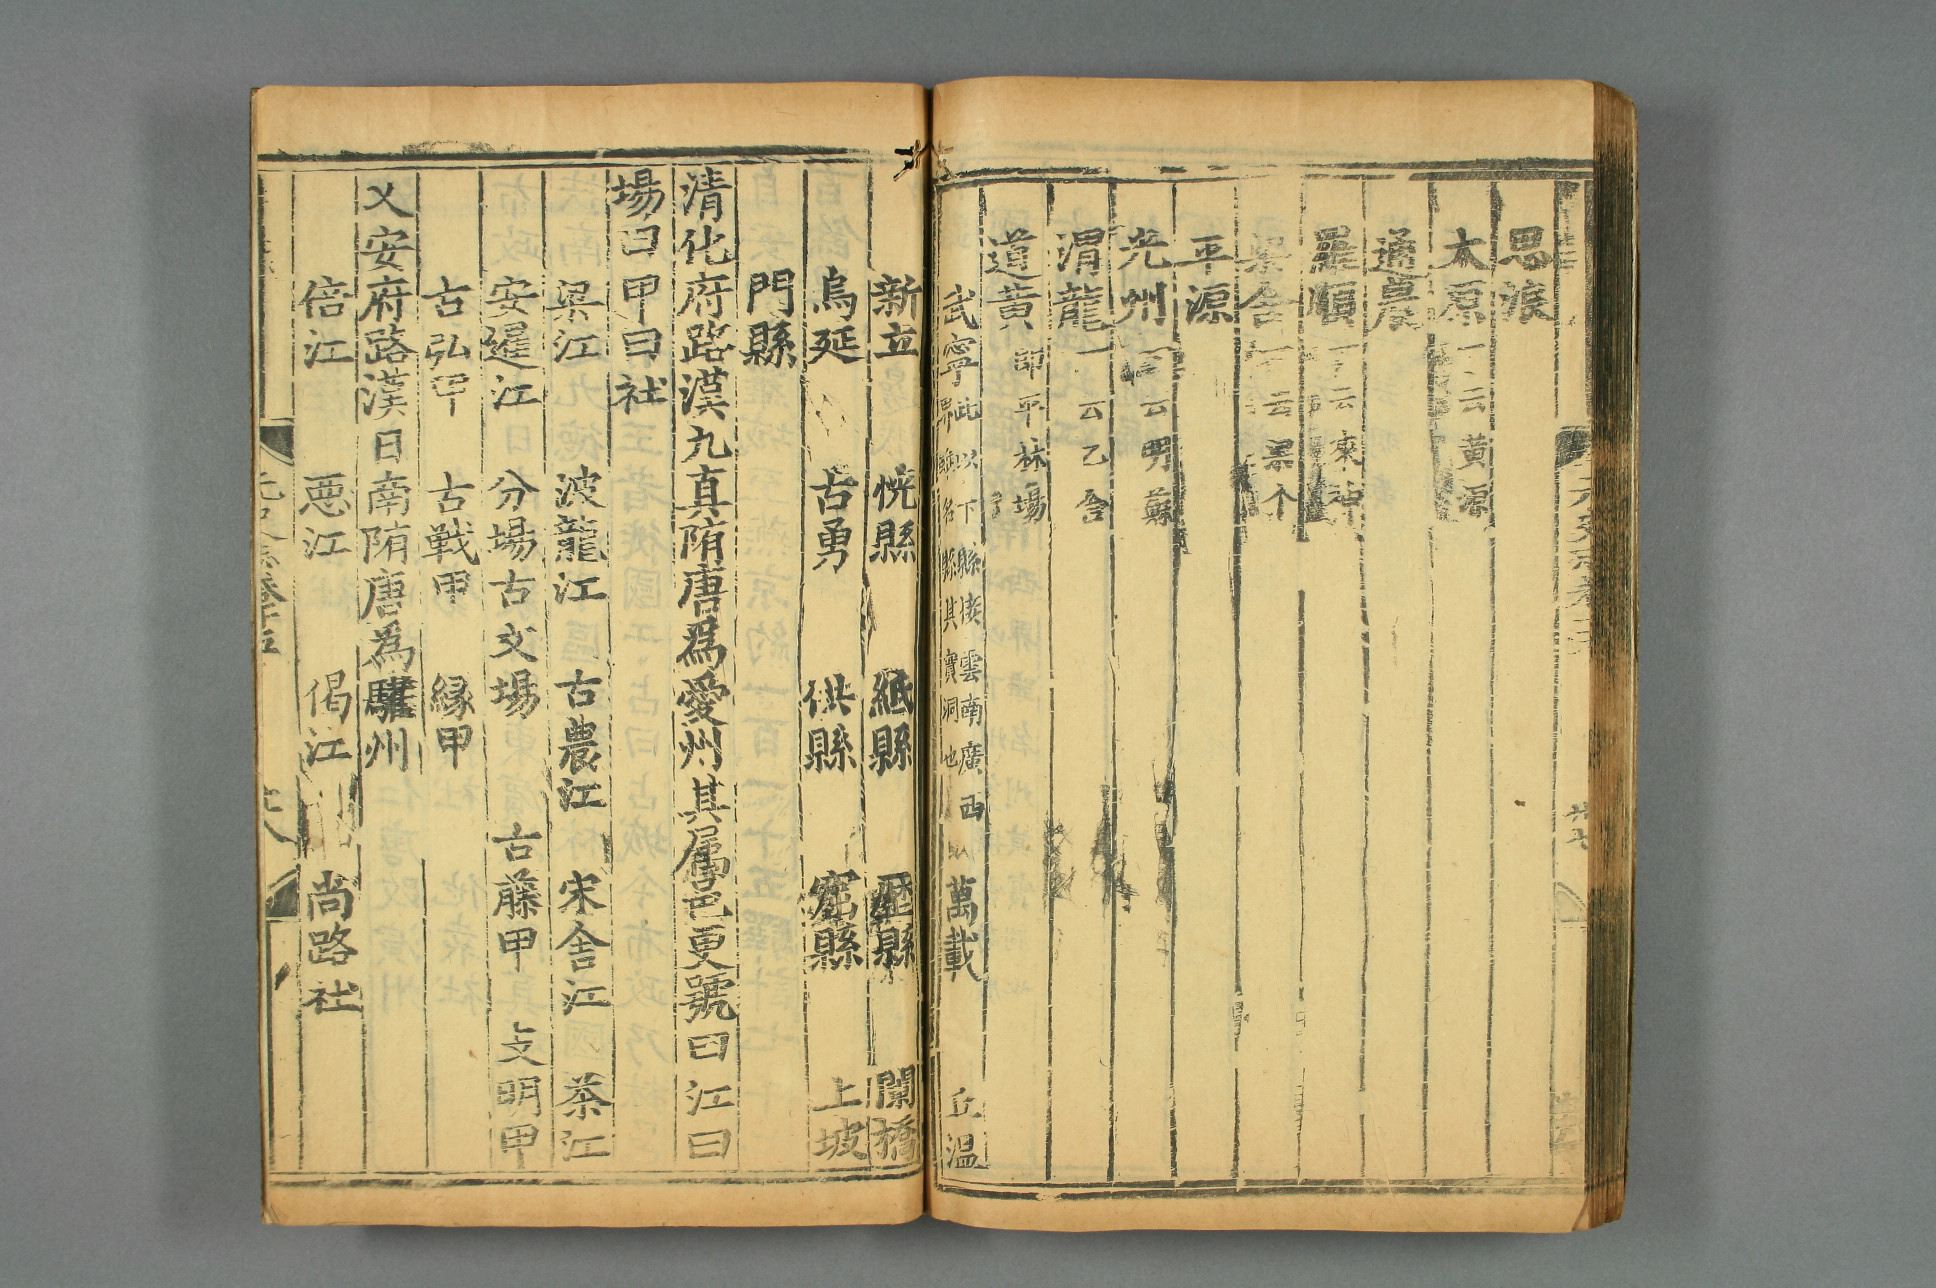 思浪
太原一云黃源
通農
羅順一云來神
梁舍一云梁个
平源
光州一云明蘇
渭龍一云乙舍
道黃即平林場
武寧此以下縣接雲南廣西界雖名縣其實洞也 萬載 丘溫
新立 恍縣 紙縣 歷縣 闌橋
烏延 古勇 供縣 窟縣 上坡
門縣
清化府路漢九真隋唐爲愛州其屬邑更號曰江曰
場曰甲曰社
梁江 波龍江 古農江 宋舍江 茶江
安暹江 分場古文場 古藤甲 支明甲
古弘甲 古戰甲 緣甲
乂安府路漢日南隋唐爲驩州
倍江 惡江 偈江 尚路社